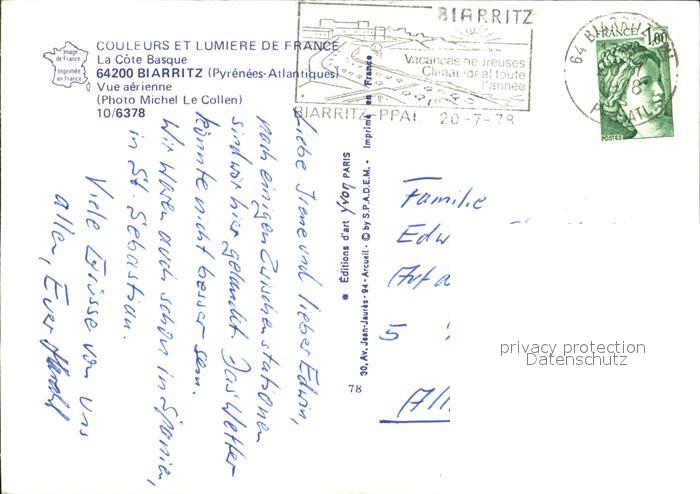 COULEURS ET LUMIERE DE FRANCE
La Côte Basque
64200 BIARRITZ (Pyrénées-Atlantiques)
Vue aérienne
(Photo Michel Le Collen)
10/6378
Image de France
Imprimée en France
BIARRITZ
Vacances heureuses
Climat idéal toute
l'année
BIARRITZ-PPAL 20-7-78
64 BIARRITZ
FRANCE 1,00
POSTES
Liebe Irene und lieber Edwin,
nach einigen Zwischenstationen
sind wir hier gelandet. Das Wetter
könnte nicht besser sein.
Wir waren auch schon in Spanien,
in St. Sebastian.
Viele Grüsse von uns
allen, Euer Harald
Editions d'art Yvon PARIS
30, Av. Jean-Jaurès - 94 - Arcueil - © by S.P.A.D.E.M. - Imprimé en France
78
Familie
Edw
5
privacy protection
Datenschutz